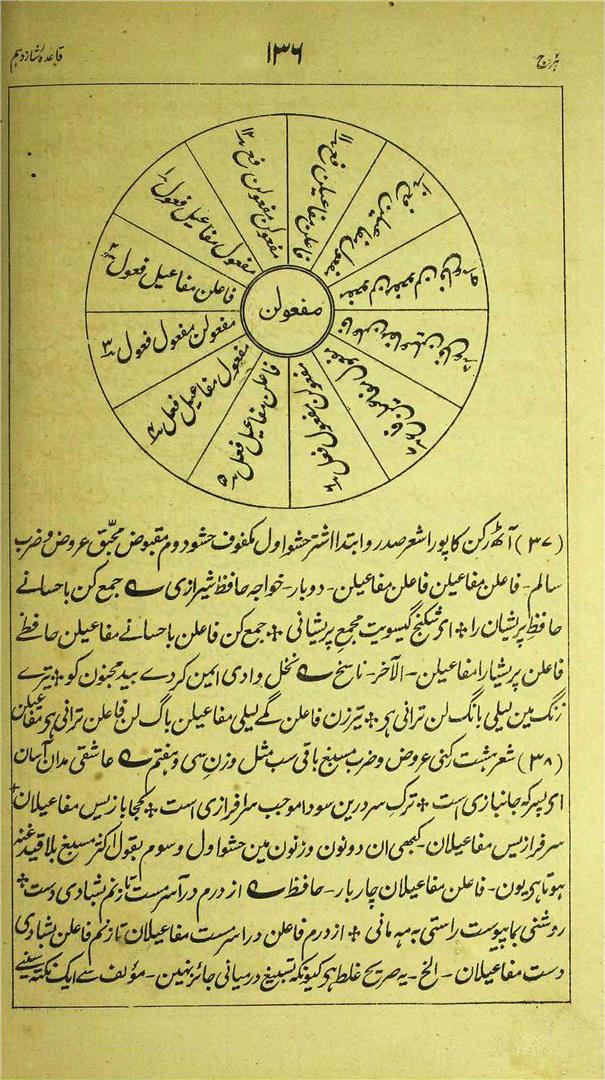 ہزج ۱۳۶ قاعدہ شانزدہم
مفعولن
فاعلن مفاعیلن فع ۱۱
مفعولن مفعولن فع ۱۲
مفعول مفاعیل فعول ۱
فاعلن مفاعیل فعول ۲
مفعولن مفعول فعول ۳
مفعول مفاعیل فعل ۴
فاعلن مفاعیل فعل ۵
مفعولن مفعول فعل ۶
(۳۷) آٹھ رکن کا پورا شعر صدر و ابتدا اشتر حشو اول مکفوف حشو دوم مقبوض محبّق عروض و ضرب
سالم۔ فاعلن مفاعیلن فاعلن مفاعیلن۔ دوبار۔ خواجہ حافظ شیرازی ؎ جمع کن باحسانے
حافظ پریشان را ؞ ای شکنج گیسویت مجمع پریشانی ؞ جمع کن فاعلن باحسانے مفاعیلن حافظے
فاعلن پریشارا مفاعیلن۔ الآخر۔ ناسخ ؎ نخل وادی ایمن کردے بید مجنون کو ؞ تیرے
زنگ مین لیلی بانگ لن ترانی ہو ؞ تیرزن فاعلن گے لیلی مفاعیلن باگ لن فاعلن ترانی ہو مفاعیلن
(۳۸) شعر ہشت رکنی عروض و ضرب مسبغ باقی سب مثل وزن سی و ہفتم ؎ عاشقی مدان آسان
ای پسر کہ جانبازی است ؞ ترک سر درین سودا موجب سرافرازی است ؞ کجا بازیس مفاعیلان
سرفرازیس مفاعیلان۔ کبھی ان دونون وزنون مین حشو اول و سوم بقول اکثر مسبغ بلا قید غنہ
ہوتا ہی یون۔ فاعلن مفاعیلان چار بار۔ حافظ ؎ از درم درآ سرمست تا زنم بشادی دست ؞
روشنی بما پیوست راستی بہ مہ مانی ؞ ازدرم فاعلن درا سرمست مفاعیلان تازنم فاعلن بشادی
دست مفاعیلان۔ الخ۔ یہ صریح غلط ہی کیونکہ تسبیغ درمیانی جائز نہین۔ مؤلف سے ایک نکتہ سنیے